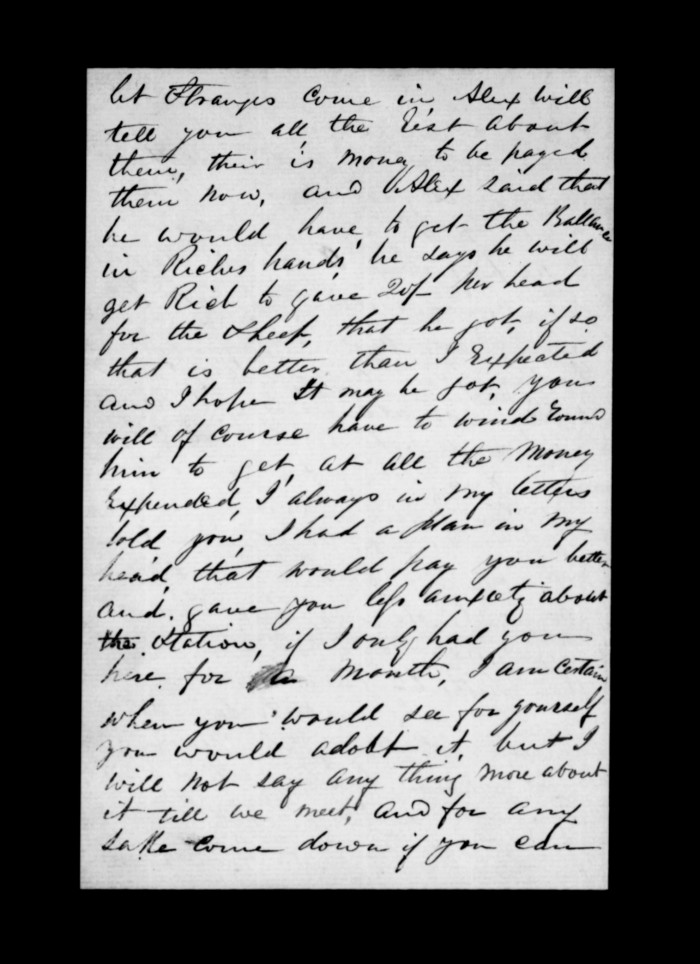 let Stranges come in, Alex will
tell you all, the rest about
them, their is money to be payed
them now, and Alex said that
he would have to get the Ballance
in Riches hands, he says he will
get Rich to gave 20/- per head
for the Sheep, that he got, if so
that is better than I Expected
and I hope It may be got, you
will of course have to wind round
him to get at all the money
Expended, I always in my letters
told you, I had a plan in my
head, that would pay you better
and gave you less anxiety about
the Station, if I only had you
here for a Month, I am certain
when you would see for yourself
you would adobt it, but I
will not say any thing more about
it till we meet, and for any
sake come down if you can